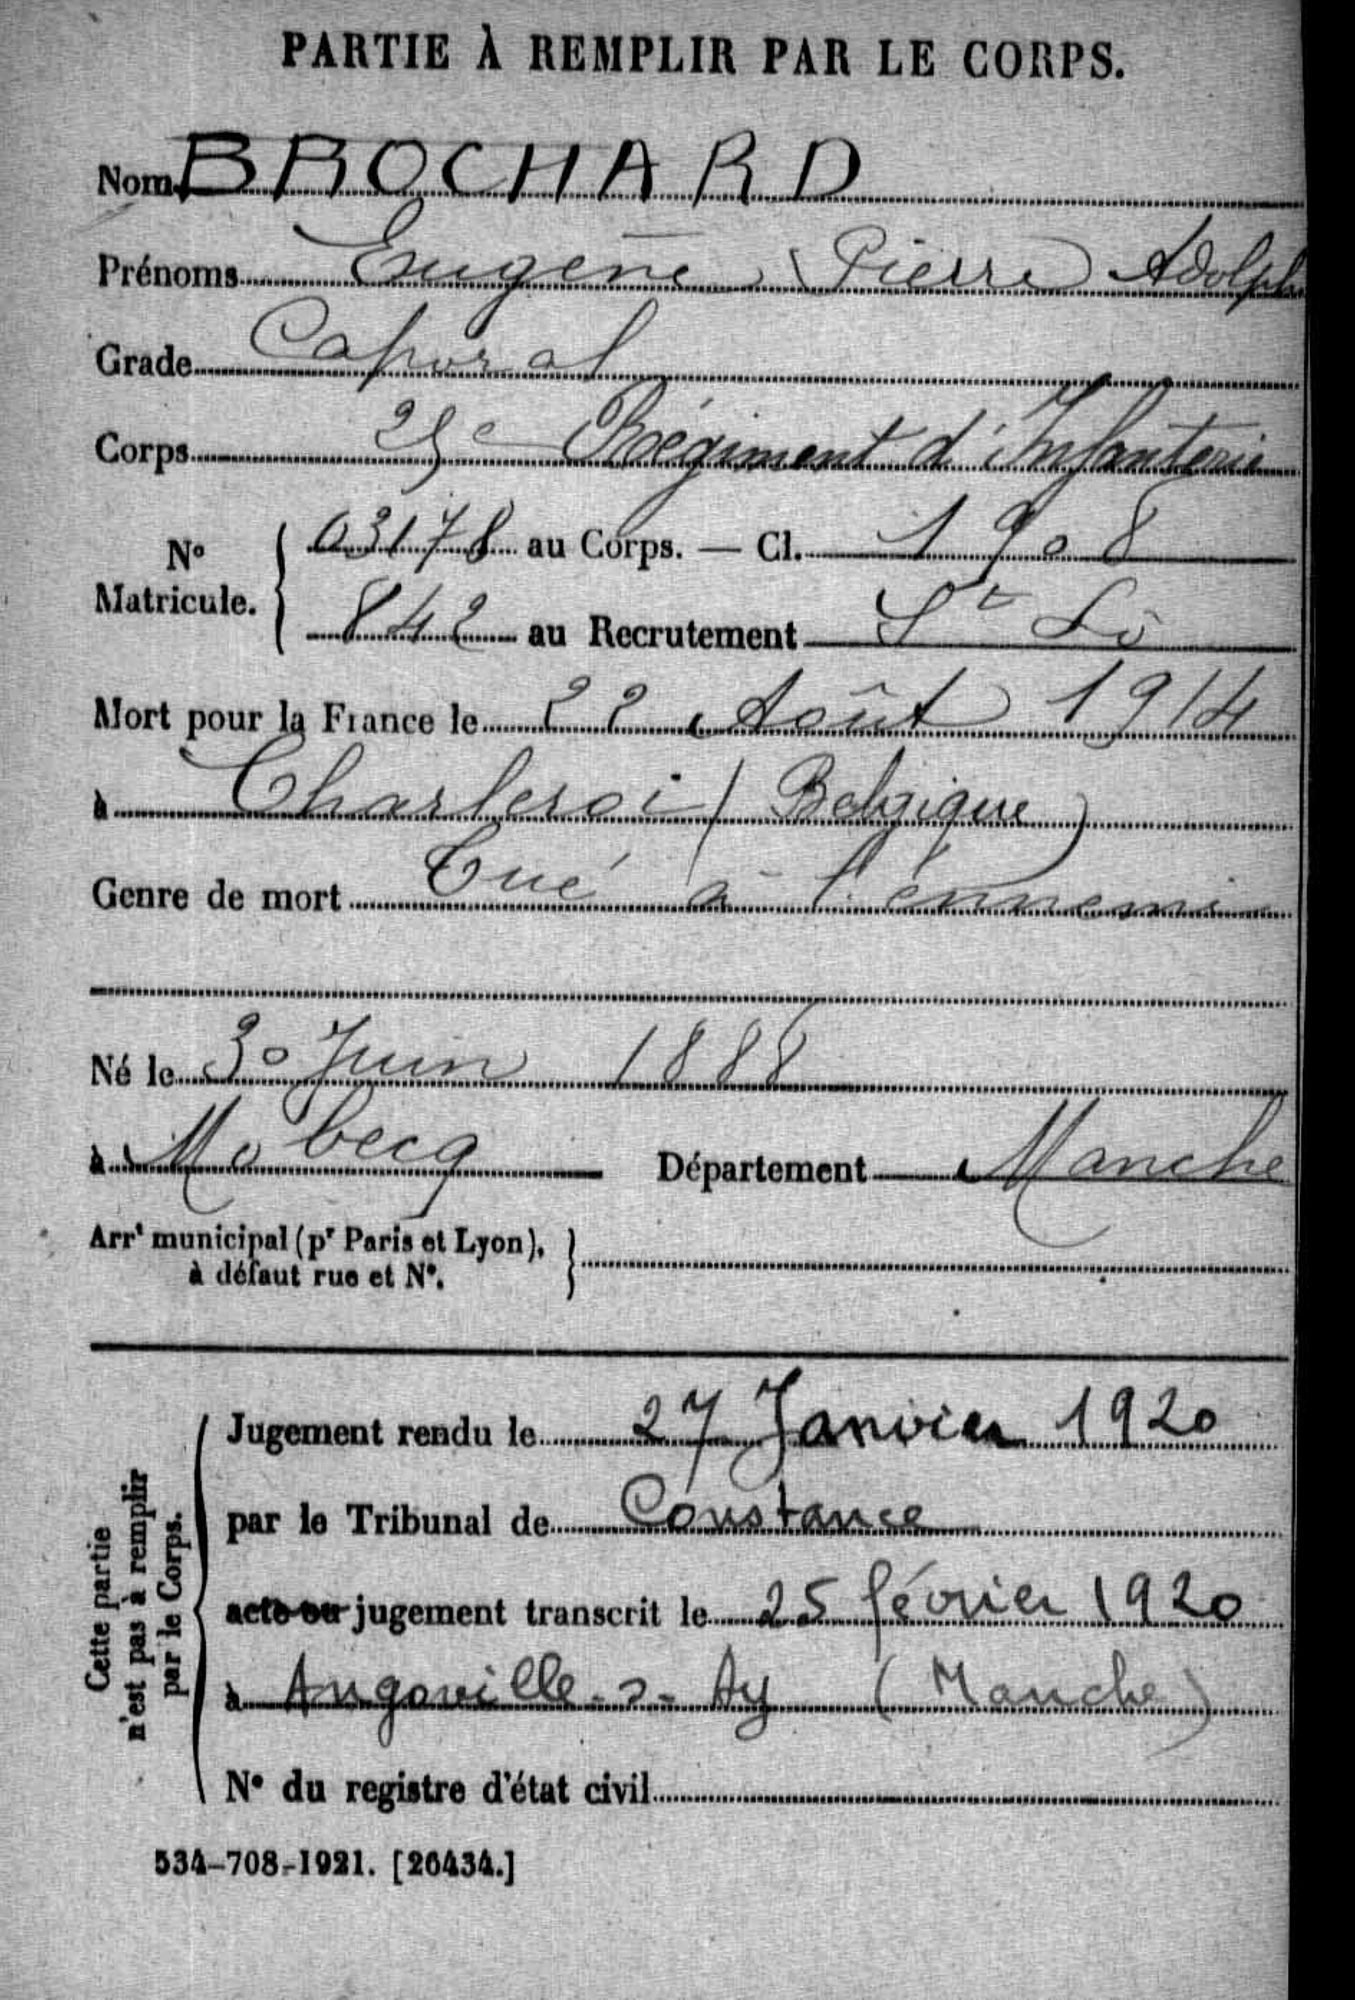 PARTIE À REMPLIR PAR LE CORPS.
Nom BROCHARD
Prénoms Eugène Pierre Adolph
Grade Caporal
Corps 25e Régiment d'Infanterie
N° Matricule. { 03178 au Corps. — Cl. 1908
842 au Recrutement St Lô
Mort pour la France le 22 Août 1914
à Charleroi (Belgique)
Genre de mort Tué à l'ennemi
Né le 30 Juin 1888
à Mobecq Département Manche
Arrt municipal (pr Paris et Lyon),
à défaut rue et N°. }
Cette partie
n'est pas à remplir
par le Corps.
Jugement rendu le 27 Janvier 1920
par le Tribunal de Coustance
acte ou jugement transcrit le 25 février 1920
à Angoville-s-Ay (Manche)
N° du registre d'état civil
534-708-1921. [26434.]